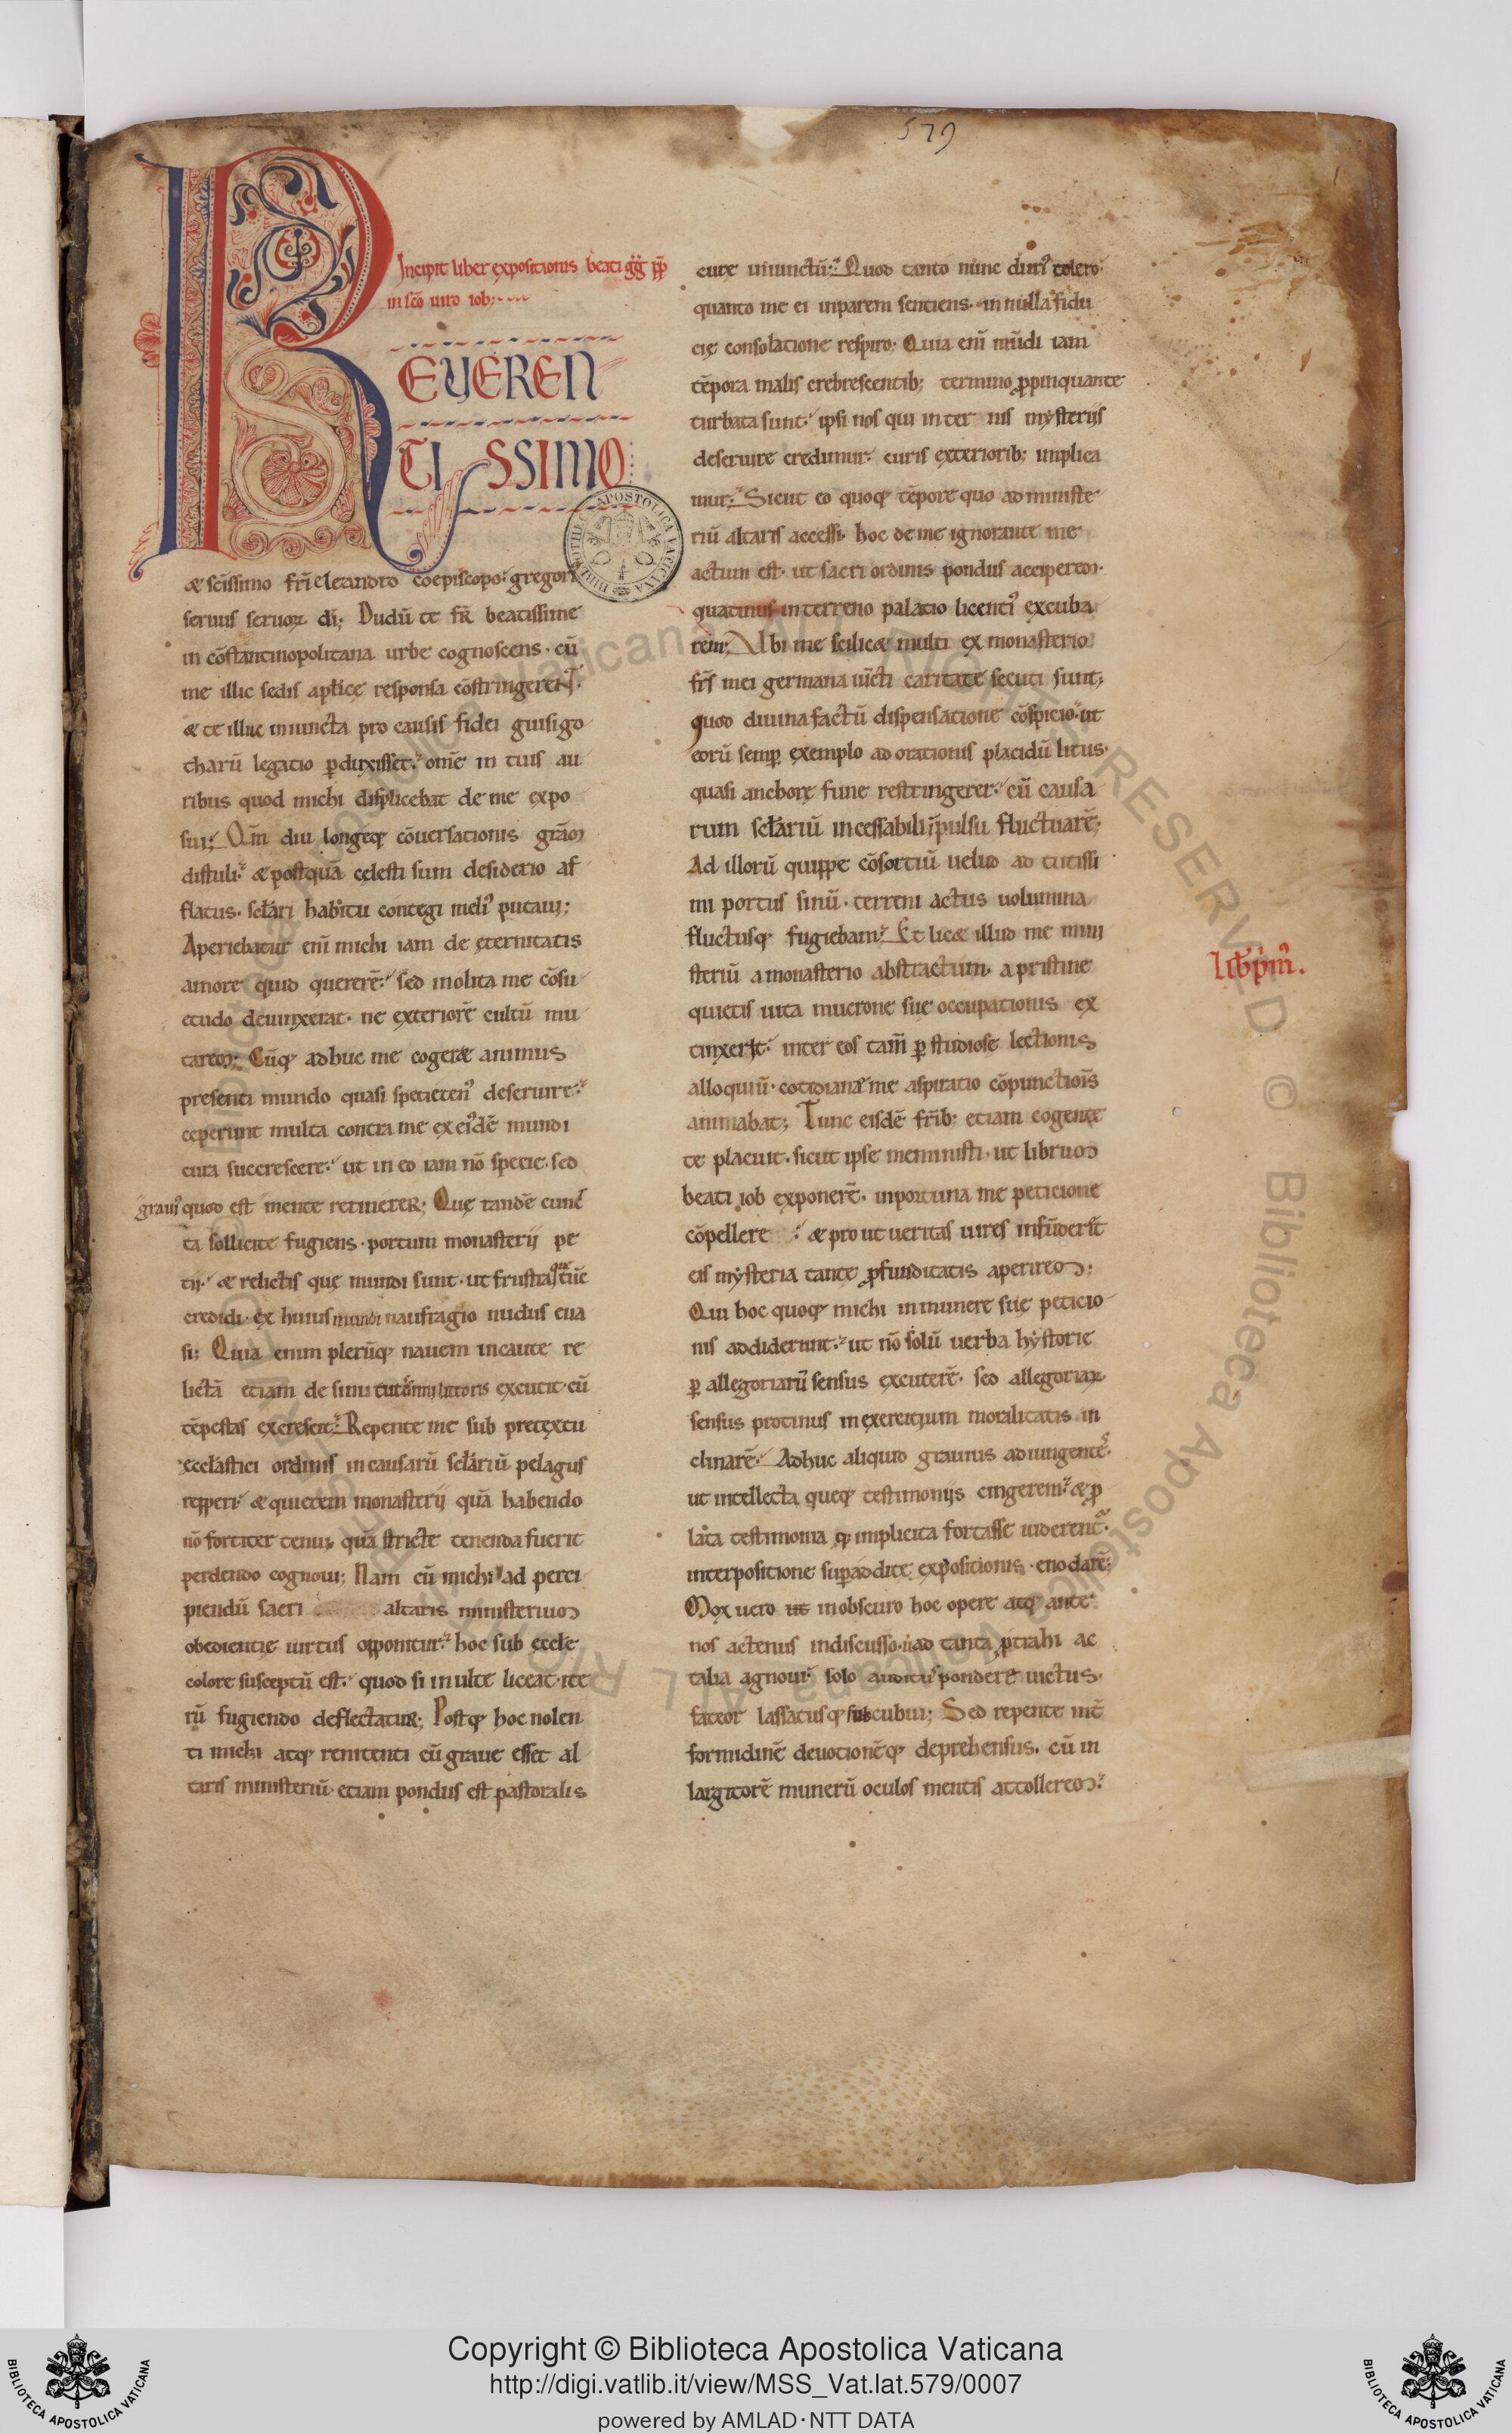 579
Incipit liber expositionis beati gg̃ pp̃
in sc̃o uiro iob;
REUEREN
TISSIMO
& sc̃issimo fr̃i eleandro coepiscopo; gregori
seruus seruoꝝ di; Dudū te fr̃ beatissime
in cōstantinopolitana urbe cognoscens · cū
me illic sedis aplicę responsa cōstringerent ·
& te illuc iniuncta pro causis fidei guisigo
tharū legatio ꝑduxisset; om̄e in tuis au
ribus quod michi displicebat de me expo
sui; Qm̄ diu longeqꝫ cōuersationis grām
distuli; & postquā cęlesti sum desiderio af
flatus · sclari habitu contegi meliꝰ putaui;
Aperiebatur eni michi iam de ęternitatis
amore quid quererē; sed inolita me cōsu
etudo deuinxerat · ne exteriorē cultū mu
tarem; Cūqꝫ adhuc me cogeret animus
presenti mundo quasi specietenꝰ deseruire;
ceperunt multa contra me ex eiꝰdē mundi
cura succrescere; ut in eo iam nō specie · sed
grauiꝰ quod est mente retinerer; Quę tandē cunc
ta sollicite fugiens · portum monasterii pe
tii; & relictis quę mundi sunt · ut frustra tūc
credidi · ex huius mundi naufragio nudus eua
si; Quia enim plerūqꝫ nauem incaute re
lictā etiam de sinu tutissimi littoris excutit · cū
tēpestas excrescit; Repente me sub pretextu
ęcclastici ordinis in causarū sclariū pelagus
repperi; & quietem monasterii quā habendo
nō fortiter tenui · quā stricte tenenda fuerit
perdendo cognoui; Nam cū michi ad perci
piendū sacri altaris ministerium
obedientię uirtus opponitur; hoc sub ęccłe
colore susceptū est; quod si inulte liceat · ite
rū fugiendo deflectatur; Postqꝫ hoc nolen
ti michi atqꝫ renitenti cū graue esset al
taris ministeriū · etiam pondus est pastoralis
curę iniunctū; Quod tanto nunc duriꝰ tolero ·
quanto me ei inparem sentiens · in nulla fidu
cię consolatione respiro; Quia eni mūdi iam
tēpora malis crebrescentibꝫ termino ꝓpinquante
turbata sunt; ipsi nos qui inter nis mysteriis
deseruire credimur · curis exterioribꝫ implica
mur; Sicut eo quoqꝫ tēpore quo ad ministe
riū altaris accessi · hoc de me ignorante me
actum est · ut sacri ordinis pondus acciperem ·
quatinus in terreno palatio licentiꝰ excuba
rem; Ubi me scilicet multi ex monasterio
fr̃s mei germana uīcti caritate secuti sunt;
quod diuina factū dispensatione cōspicio; ut
eorū semꝑ exemplo ad orationis placidū litus ·
quasi anchorę fune restringerer; cū causa
rum sclariū incessabili īpulsu fluctuarē;
Ad illorū quippe cōsortiū uelud ad tutissi
mi portus sinū · terreni actus uolumina
fluctusqꝫ fugiebam; Et licet illud me mini
steriū a monasterio abstractum · a pristine
quietis uita mucrone suę occupationis ex
tinxerit; inter eos tam̄ ꝑ studiose lectionis
alloquiū · cotidianę me aspiratio cōpunctiōis
animabat; Tunc eisdē fr̃ibꝫ etiam cogente
te placuit · sicut ipse meministi · ut librum
beati iob exponerē · inportuna me peticione
cōpellere; & prout ueritas uires infūderit
eis mysteria tantę ꝓfunditatis aperirem;
Qui hoc quoqꝫ michi in munere suę peticio
nis addiderunt; ut nō solū uerba hystorie
ꝑ allegoriarū sensus excuterē · sed allegoriaꝝ
sensus protinus in exercitium moralitatis in
clinarē; Adhuc aliquid grauius adiungentes ·
ut intellecta queqꝫ testimoniis cingerem; & ꝓ
lata testimonia qꝫ implicita fortasse uiderent ·
interpositione suꝑaddite expositionis · enodarē;
Mox uero ut in obscuro hoc opere atqꝫ ante
nos actenus indiscusso · ad tanta ꝓtrahi ac
talia agnoui; solo auditus pondere uictus ·
fateor lassatusqꝫ succubui; Sed repente int̄
formidinē deuotionēqꝫ deprehensus · cū in
largitorē munerū oculos mentis attollerem;
lib̄ pim̄ꝰ.
Copyright © Biblioteca Apostolica Vaticana
http://digi.vatlib.it/view/MSS_Vat.lat.579/0007
powered by AMLAD·NTT DATA
BIBLIOTECA APOSTOLICA VATICANA
BIBLIOTECA APOSTOLICA VATICANA